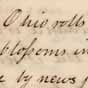 Ohio rolls
blossoms in
by news